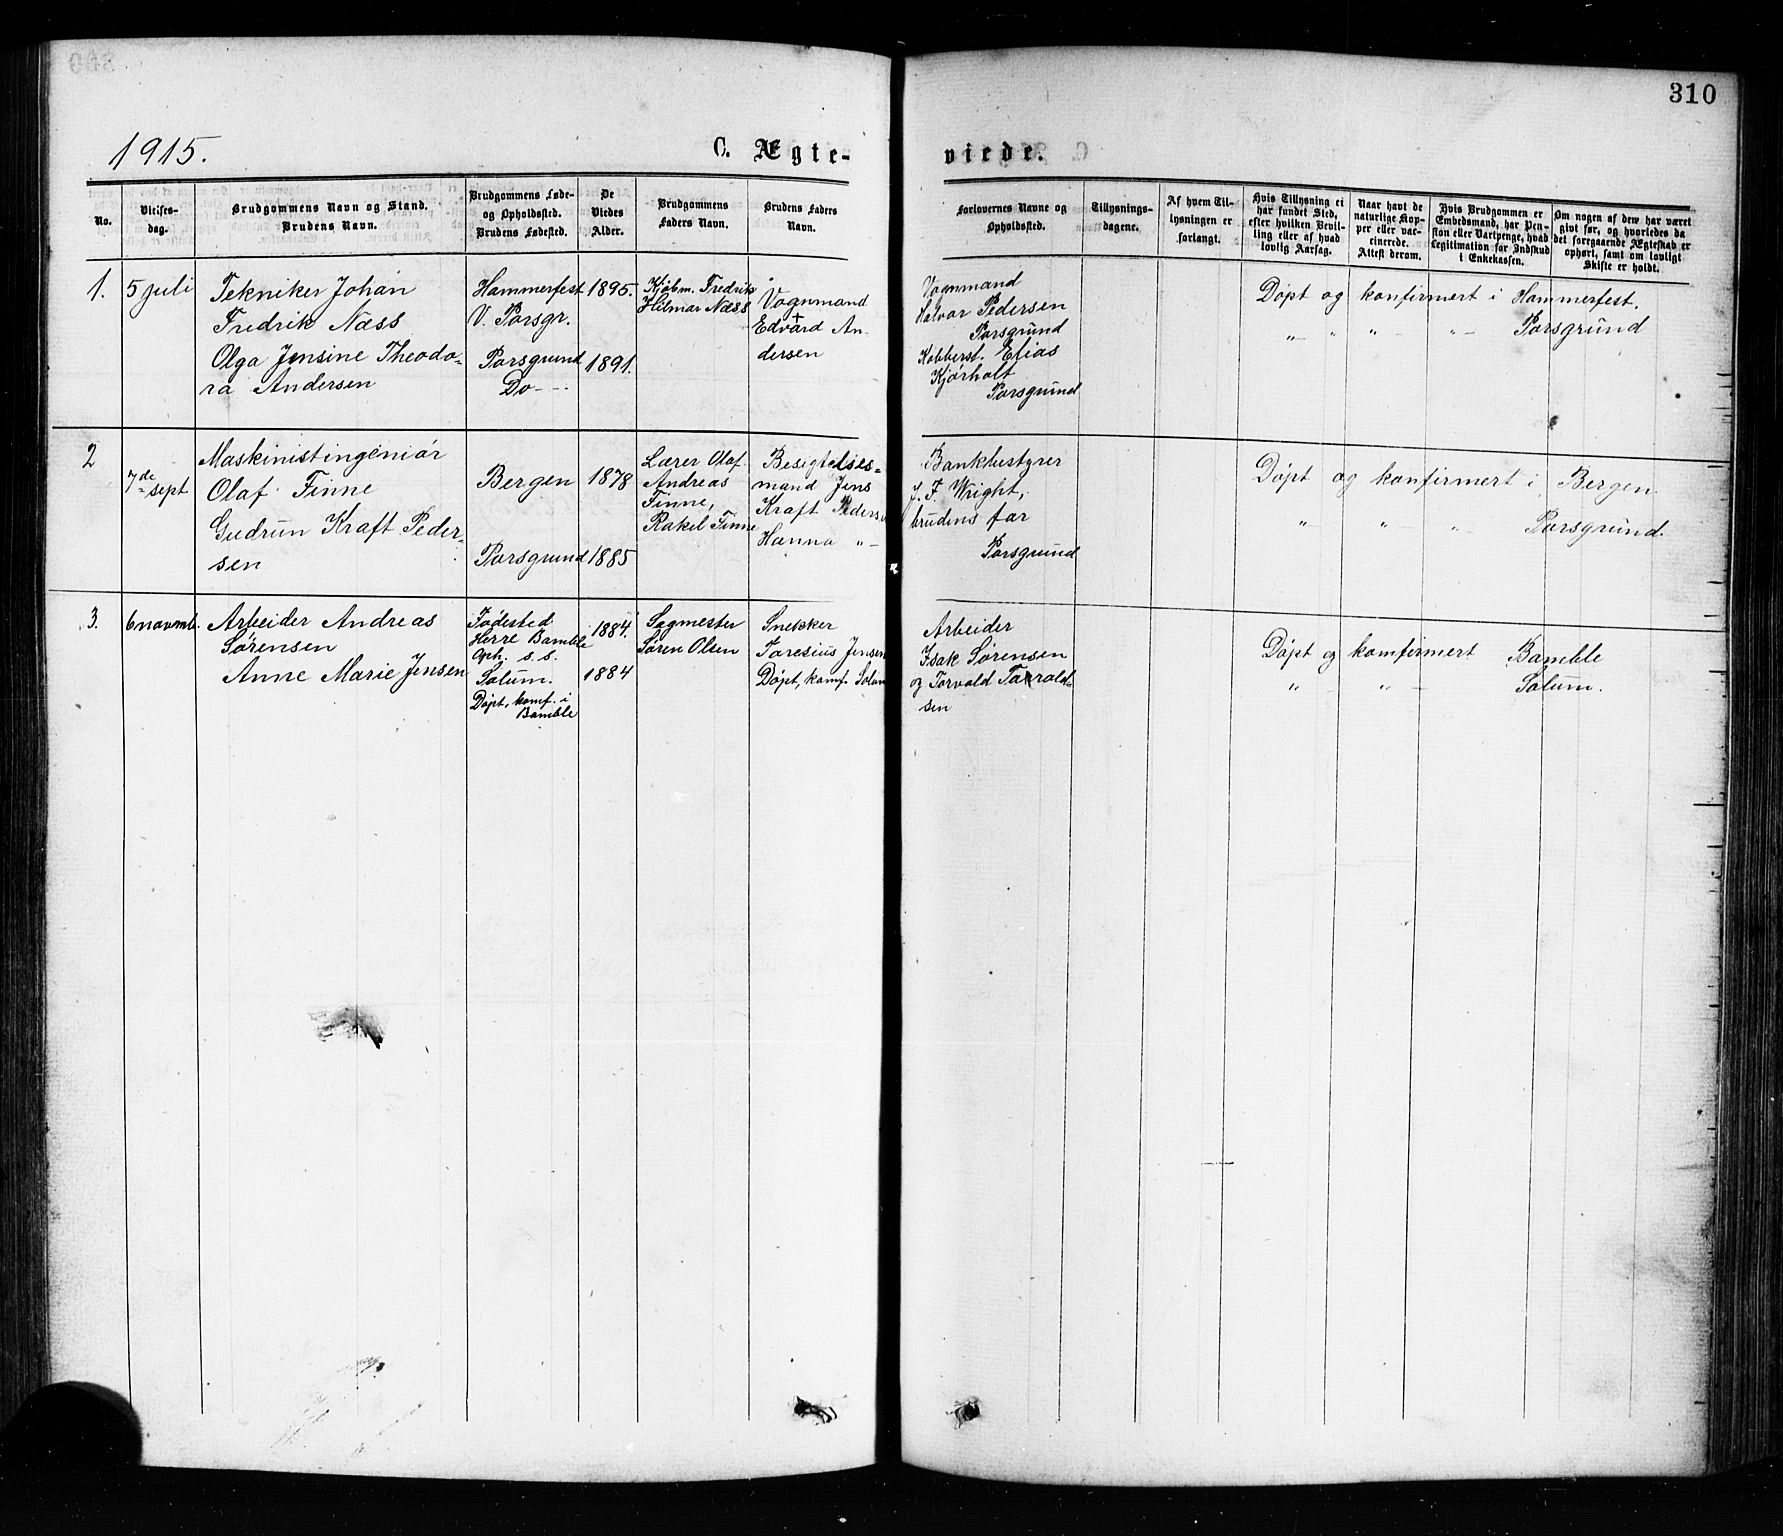 310
1915.
C. Ægte-
viede.
No.
Vielses-
dag.
Brudgommens Navn og Stand.
Brudens Navn.
Brudgommens Føde-
og Opholdssted.
Brudens Fødested.
De
Viedes
Alder.
Brudgommens
Faders Navn.
Brudens Faders
Navn.
Forlovernes Navne og
Opholdssted.
Tillysnings-
dagene.
Af hvem Til-
lysningen er
forlangt.
Hvis Tillysning ei
har fundet Sted,
efter hvilken Bevil-
ling eller af hvad
lovlig Aarsag.
Naar havt de
naturlige Kop-
per eller vac-
cinerede.
Attest derom.
Hvis Brudgommen er
Embedsmand, har Pen-
sion eller Vartpenge, hvad
Legitimation for Indskud
i Enkekassen.
Om nogen af dem har været
gift før, og hvorledes da
det foregaaende Ægteskab er
ophørt, samt om lovligt
Skifte er holdt.
1.
5 juli
Tekniker Johan
Fredrik Næss
Olga Jensine Theodo-
ra Andersen
Hammerfest
V. Porsgr.
Porsgrund
Do - - -
1895.
1891.
Kjøbm. Fredrik
Hilmar Næss
Vognmand
Edvard An-
dersen
Vognmand
Halvor Pedersen
Porsgrund
Kobberst. Elias
Kjørholt
Porsgrund
Døpt og konfirmert i Hammerfest.
" - " " - " - Porsgrund
2
7de sept
Maskinistingeniør
Olaf Finne
Gudrun Kraft Peder-
sen
Bergen
Porsgrund
1878
1885
Lærer Olaf
Andreas
Finne,
Rakel Finne
Besigtelses-
mand Jens
Kraft Pederse
Hanna " -
Bankbestyrer
J. F. Wright,
brudens far
Porsgrund
Døpt og konfirmert i Bergen.
" " " Porsgrund.
3.
6 novmb.
Arbeider Andreas
Sørensen
Anne Marie Jensen
Fødested
Herre Bamble
Oph. s. s.
Solum.
Døpt, komf. i
Bamble
1884.
1884
Sagmester
Søren Olsen
Snekker
Taresius Jensen
Døpt, komf. Solum
Arbeider
Isak Sørensen
og Torvald Tarald-
sen
Døpt og komfirmert Bamble
" - " - Solum.